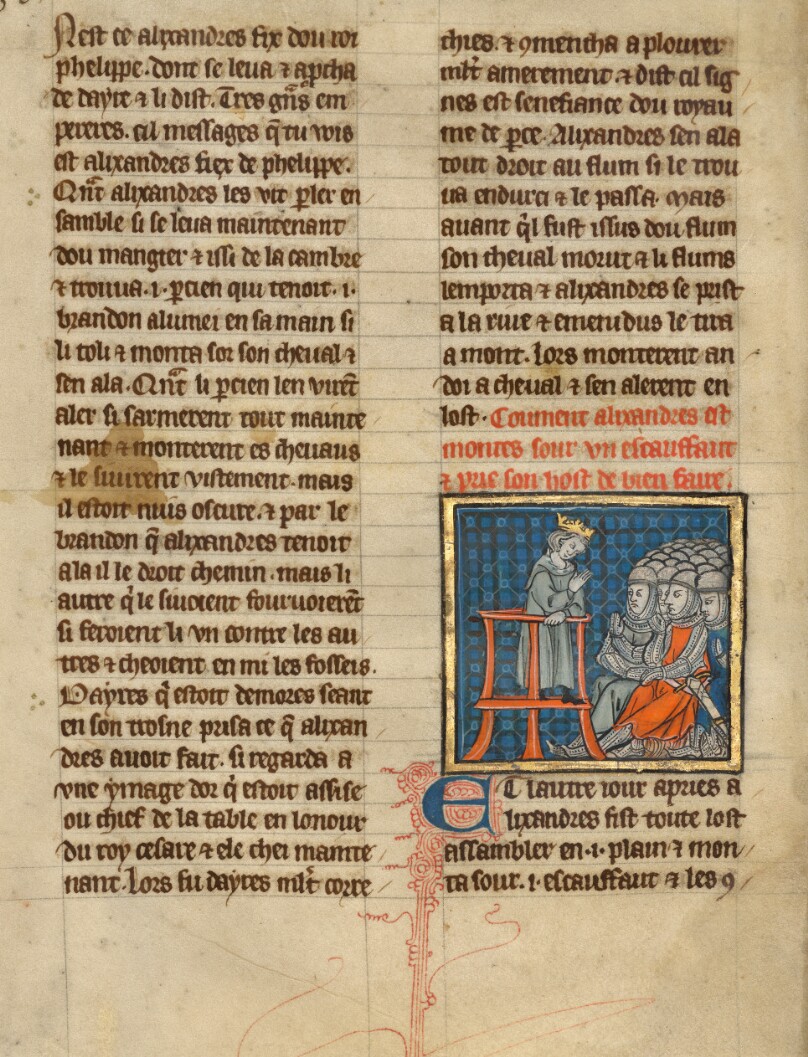 Nest ce alixandres fix dou roi
phelippe. dont se leua ⁊ ap̱cha
de dayre ⁊ li dist. Tres gñs em
pereres. cil messages q̃ tu uois
est alixandres fiex de phelippe.
Qñt alixandres les vit ꝑler en
samble si se leua maintenant
dou mangier ⁊ issi de la cambre
⁊ trouua .i. ꝑcien qui tenoit .i.
brandon alumei en sa main si
li toli ⁊ monta sor son cheual ⁊
sen ala. Qñt li ꝑcien len virẽt
aler si sarmerent tout mainte
nant ⁊ monterent es cheuaus
⁊ le siuirent vistement. mais
il estoit nuis oscure. ⁊ par le
brandon q̃ alixandres tenoit
ala il le droit chemin. mais li
autre q̃ le siuoient fouruoierẽt
si feroient li vn contre les au
tres ⁊ cheoient en mi les fosseis.
Dayres q̃ estoit demores seant
en son trosne prisa ce q̃ alixan
dres auoit fait. si regarda a
vne ymage dor q̃ estoit assise
ou chief de la table en lonour
du roy cesare ⁊ ele chei mainte
nant. Lors fu dayres ml̃t corre
chies. ⁊ ꝯmencha a plourer
ml̃t amerement. ⁊ dist cil sig
nes est senefiance dou royau
me de ꝑce. Alixandres sen ala
tout droit au flum si le trou
ua endurci ⁊ le passa. Mais
auant q̃l fust issus dou flum
son cheual morut ⁊ li flums
lemporta ⁊ alixandres se prist
a la riue ⁊ emeridus le tira
a mont. Lors monterent an
doi a cheual ⁊ sen alerent en
lost. Coument alixandres est
montes sour vn escauffaut
⁊ prie son host de bien faire.
ET lautre iour apries a
lixandres fist toute lost
assambler en .i. plain ⁊ mon
ta sour .i. escauffaut ⁊ les ꝯ